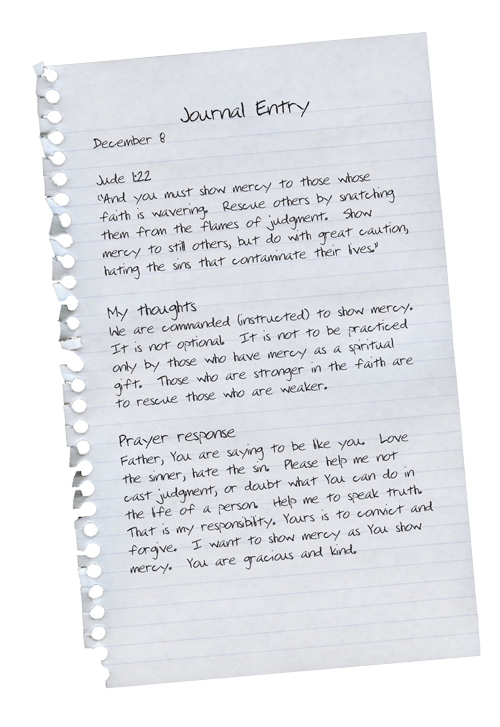 Journal Entry
December 8
Jude 1:22
"And you must show mercy to those whose
faith is wavering. Rescue others by snatching
them from the flames of judgment. Show
mercy to still others, but do with great caution,
hating the sins that contaminate their lives."
My thoughts
We are commanded (instructed) to show mercy.
It is not optional. It is not to be practiced
only by those who have mercy as a spiritual
gift. Those who are stronger in the faith are
to rescue those who are weaker.
Prayer response
Father, You are saying to be like you. Love
the sinner, hate the sin. Please help me not
cast judgment, or doubt what You can do in
the life of a person. Help me to speak truth.
That is my responsibility. Yours is to convict and
forgive. I want to show mercy as You show
mercy. You are gracious and kind.